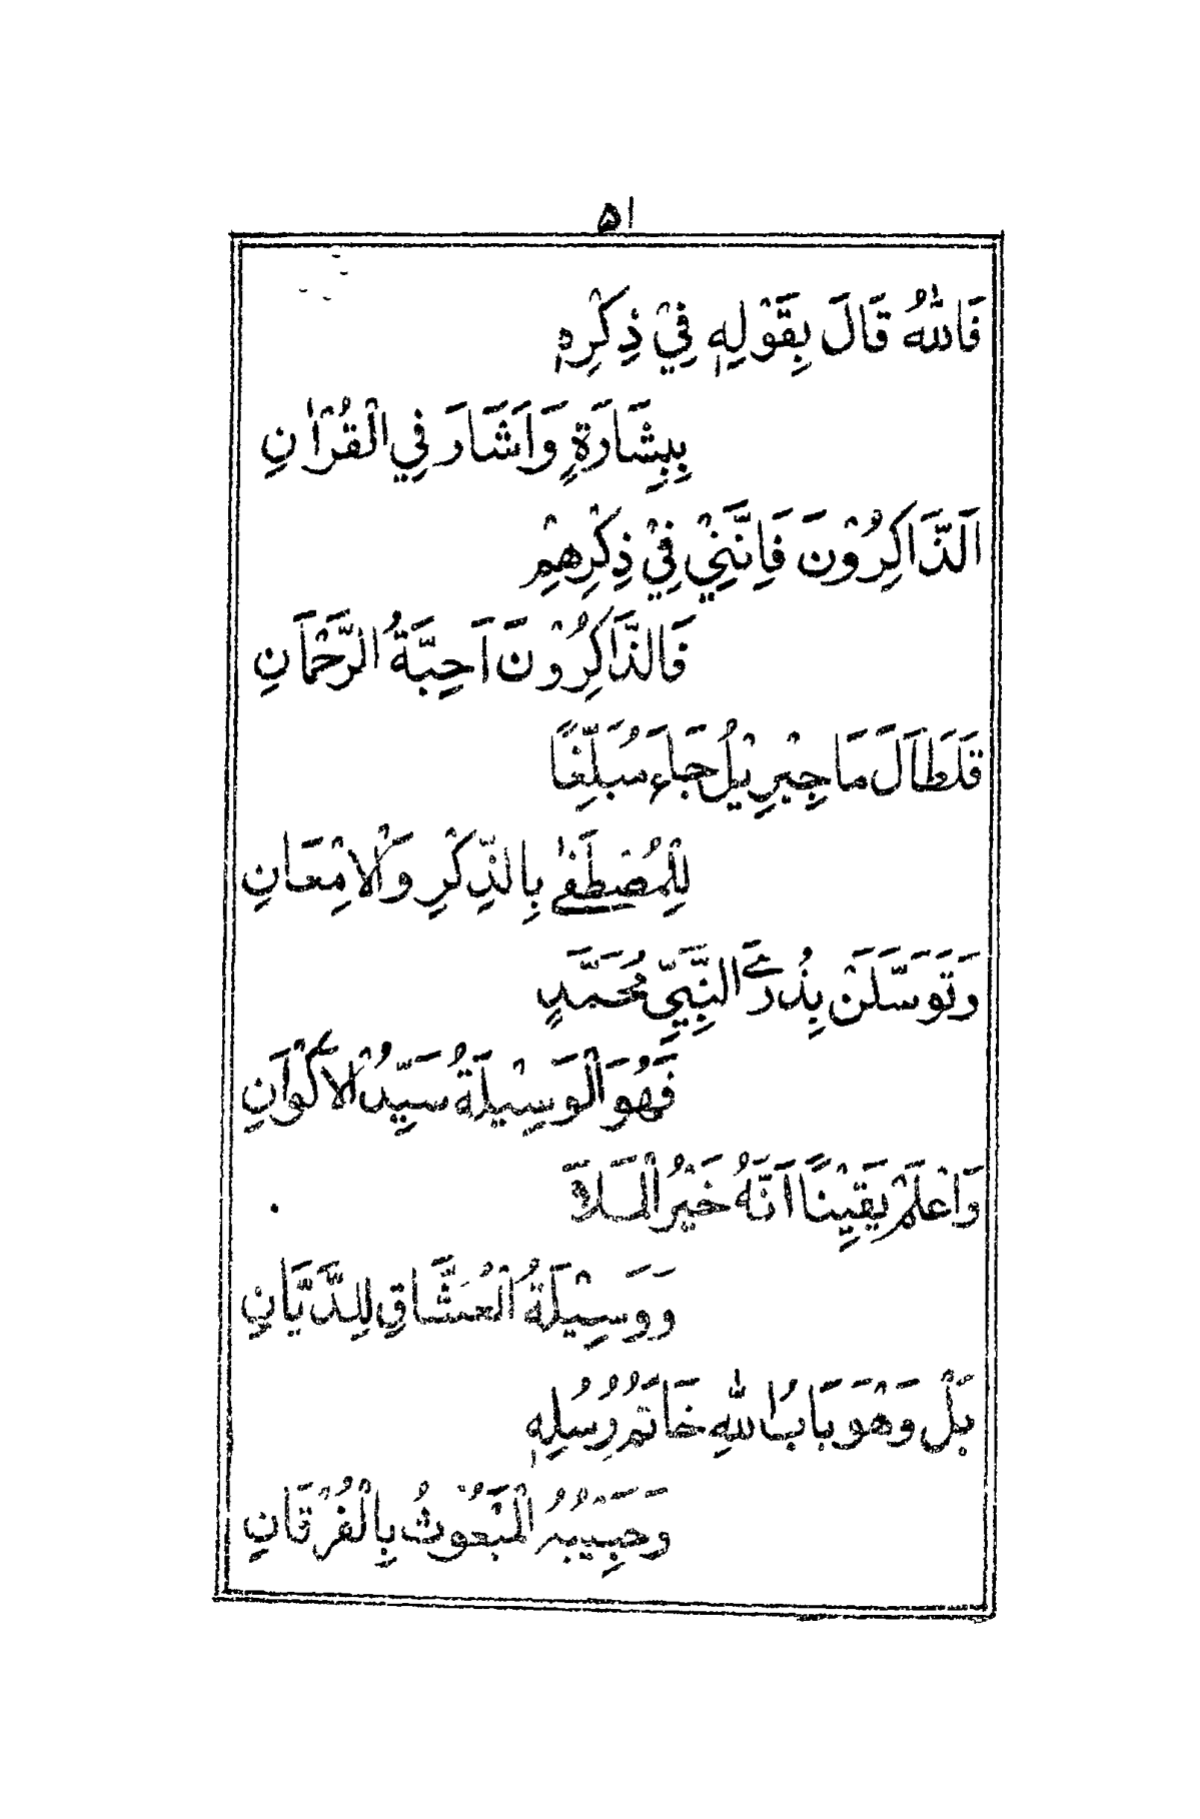 ۵۱
فَاللّٰهُ قَالَ بِقَوْلِهٖ فِيْ ذِكْرِهٖ
بِبِشَارَةٍ وَاَشَارَ فِي الْقُرْاٰنِ
اَلذَّاكِرُوْنَ فَاِنَّنِيْ فِيْ ذِكْرِهِمْ
فَالذَّاكِرُوْنَ اَحِبَّةُ الرَّحْمَانِ
قَلَطَالَ مَا جِبْرِيْلُ جَاءَ مُبَلِّغًا
لِلْمُصْطَفٰى بِالذِّكْرِ وَالْاِمْعَانِ
وَتَوَسَّلَنْ النَّبِيِّ مُحَمَّدٍ
فَهُوَ الْوَسِيْلَةُ سَيِّدُ الْاَكْوَانِ
وَاعْلَمْ يَقِيْنًا اَنَّهُ خَيْرُ الْمَلَاۤ
وَوَسِيْلَةُ الْعُشَّاقِ لِلدَّيَّانِ
بَلْ وَهْوَ بَابُ اللّٰهِ خَاتَمُ رُسُلِهٖ
وَحَبِيْبُهُ الْمَبْعُوْثُ بِالْفُرْقَانِ